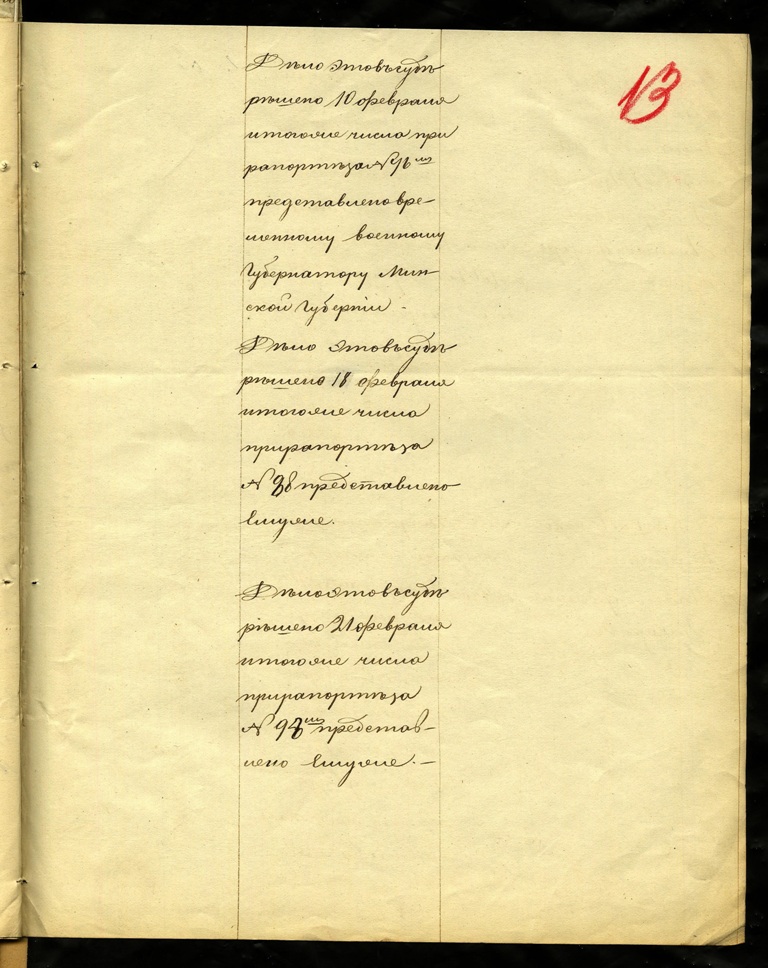 13
Дѣло это въ судѣ
рѣшено 10 февраля
и того же числа при
рапортѣ за № 76 мъ
представлено вре-
менному военному
Губернатору Мин-
ской Губерніи -
Дѣло это въ судѣ
рѣшено 18 февраля
и того же числа
при рапортѣ за
№ 88 представлено
Ему же.
Дѣло это въ судѣ
рѣшено 21 февраля
и того же числа
при рапортѣ за
№ 98 мъ представ-
лено Ему же. —